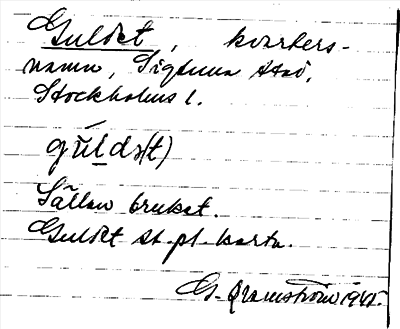 Guldet, kvarters-
namn, Sigtuna stad,
Stockholms l.
gŭlds(t)
Sällan brukat.
Guldet st.pl.karta.
G. Qvarnström 1945.